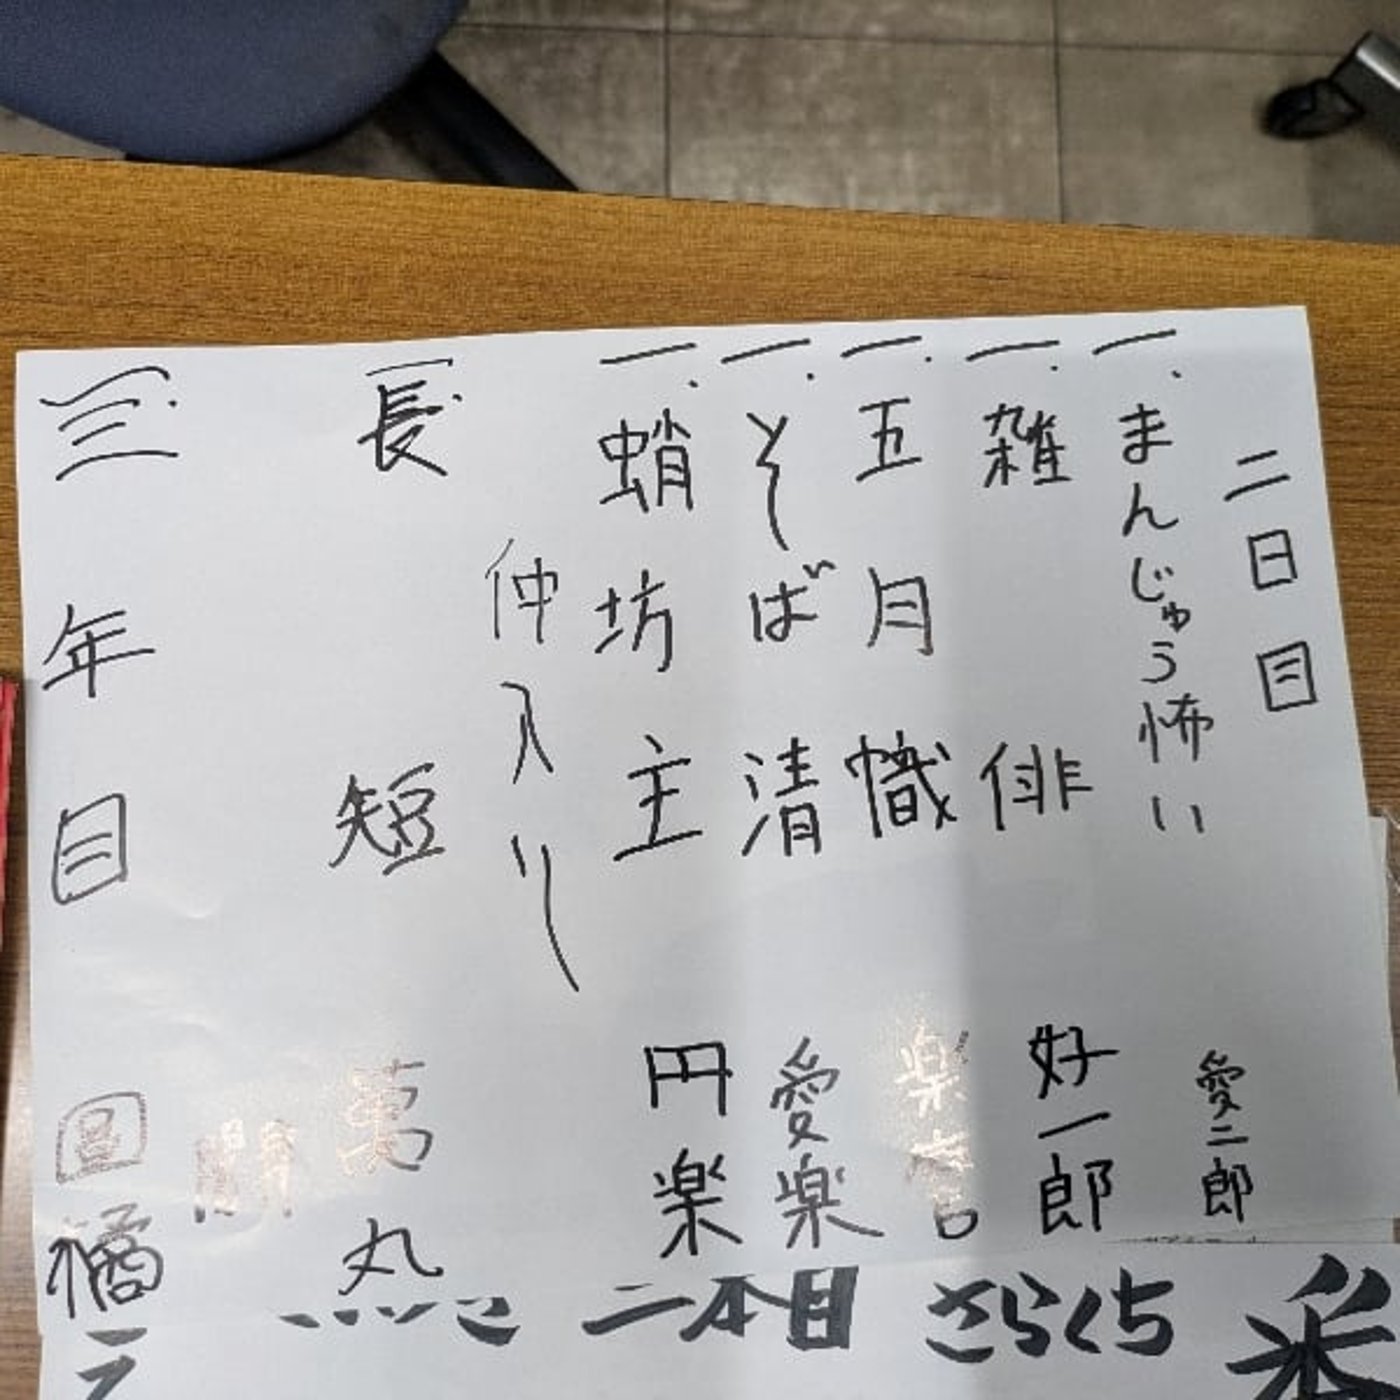 二日目
一.まんじゅう怖い 愛二郎
一.雑俳 好一郎
一.五月幟 楽
一.そば清 愛楽
一.蛸坊主 円楽
仲入り
一.長短 萬丸
三年目 圓橘
さらくち
二本目